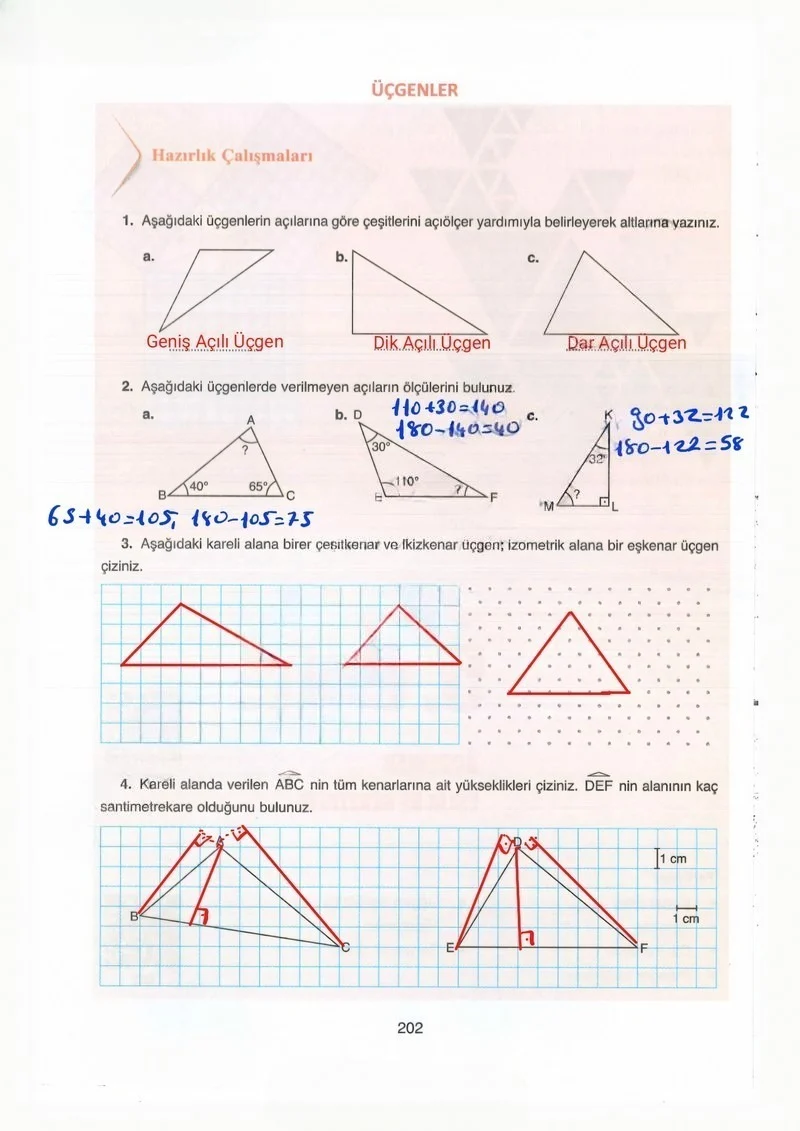 ÜÇGENLER
Hazırlık Çalışmaları
1. Aşağıdaki üçgenlerin açılarına göre çeşitlerini açıölçer yardımıyla belirleyerek altlarına yazınız.
a. b. c.
Geniş Açılı Üçgen Dik Açılı Üçgen Dar Açılı Üçgen
2. Aşağıdaki üçgenlerde verilmeyen açıların ölçülerini bulunuz.
a. b. c.
110+30=140
180-140=40
90+32=122
180-122=58
A
?
B 40° 65° C
D
30°
E 110° ? F
K
32°
M ? L
65+40=105, 180-105=75
3. Aşağıdaki kareli alana birer çeşitkenar ve ikizkenar üçgen; izometrik alana bir eşkenar üçgen
çiziniz.
4. Kareli alanda verilen ABC nin tüm kenarlarına ait yükseklikleri çiziniz. DEF nin alanının kaç
santimetrekare olduğunu bulunuz.
A
B
C
D
E F
1 cm
1 cm
202